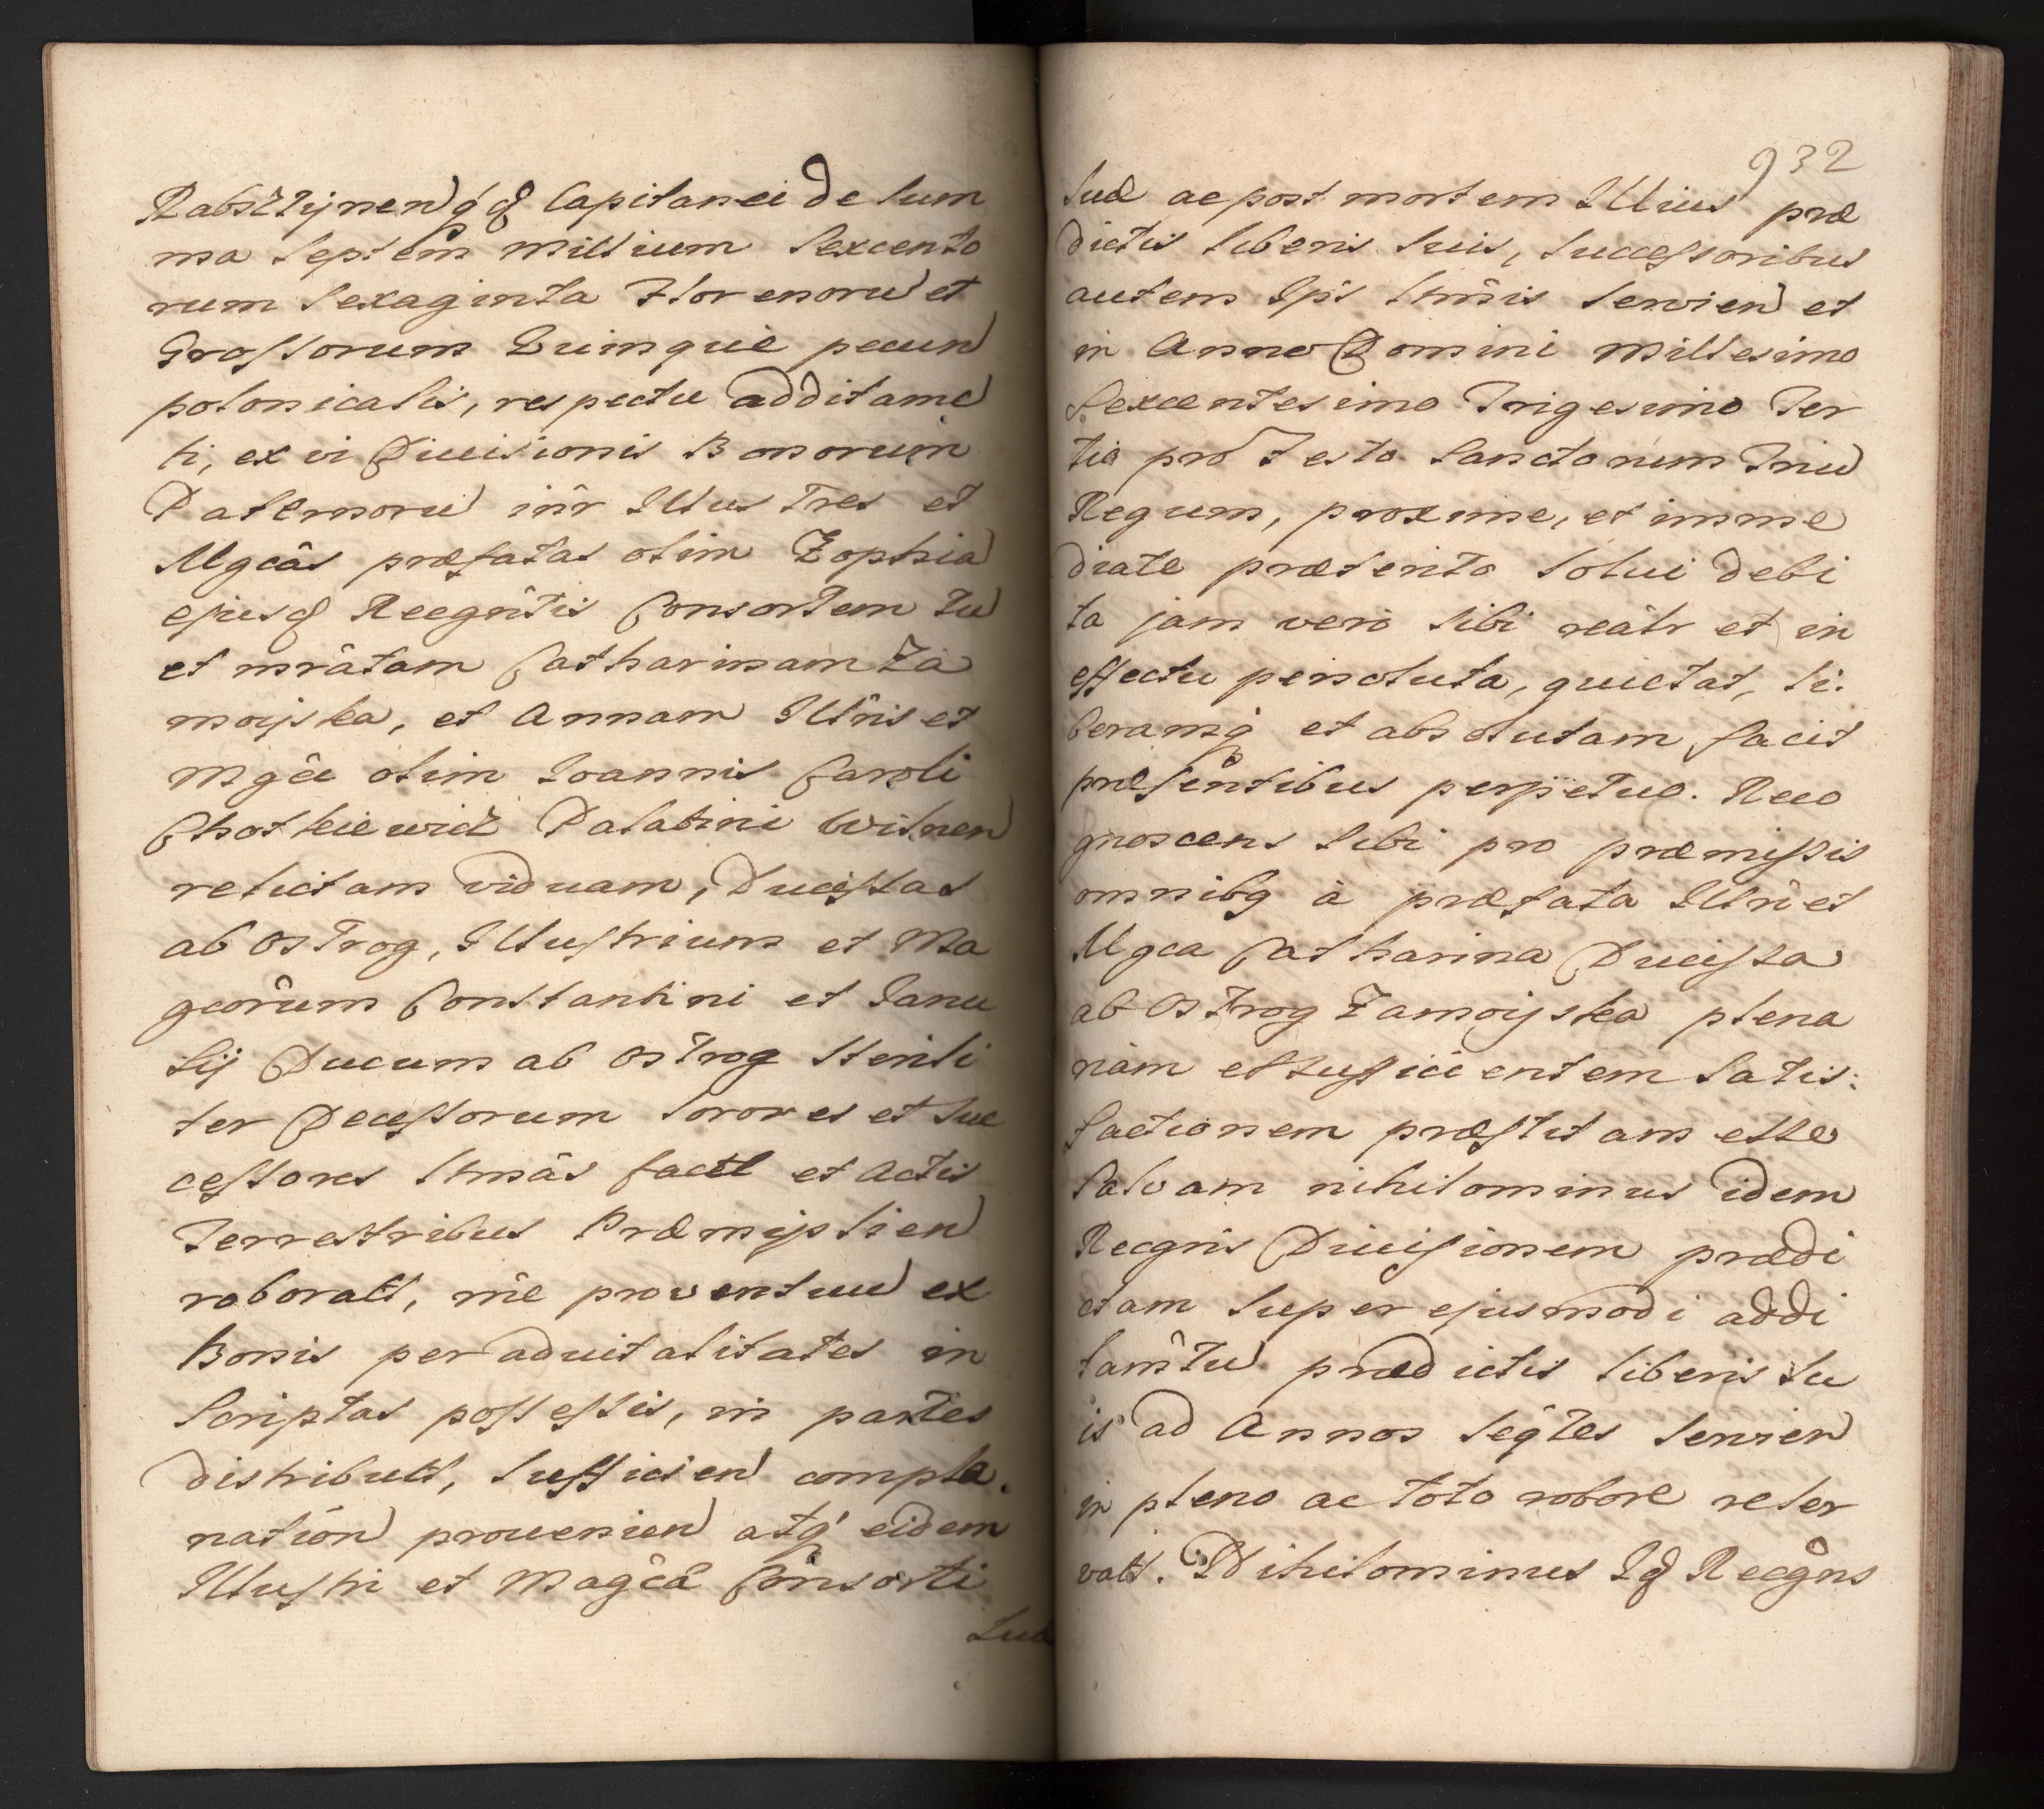 Rabsztÿnen) q́ꝫ Capitanei de sum
ma septem millium sexcento
rum sexaginta Florenoru) et
Grossorum Quinque pecun)
polonicalis, respectu additame)
ti, ex vi Diuisionis Bonorum
Paternoru) iñr Illus Tres et
Mgcâs præfatas olim Zophia)
ejusꝫ Recgñtis Consortem Tu)
et nrâtam Catharinam Za
moÿska, et Annam Illr̂is et
Mgĉi olim Ioannis Caroli
Chotkiewicz Palatini Wilnen)
relictam viduam, Ducissas
ab OsTrog, Illustrium et Ma
gcôrum Constantini et Janu
sÿ Ducum ab OsTrog sterili
ter Decessorum sorores et suc
cessores ltm̂âs factt et Actis
Terrestribus Præmislien)
roboratt, nîe prouentuu) ex
Bonis per aduitalitates in
Scriptas possessis, in partes
distributt, sufficien) compla.
natiôn) prouenien) atq́ eidem
Illustri et Magĉâ Côsorti
suæ
932
suæ ac post mortem Illius præ
dictis liberis suis, successoribus
autem Ipŝ ltm̂is servien) et
in Anno Domini millesimo
Sexcentesimo Trigesimo Ter
tio pro Festo Sanctorum Triu)
Regum, proxime, et imme
diate præterito solui debi
ta jam vero sibi reâlr et in
effectu persoluta, quietat, li:
beramq́ et absolutam facit
præsentibus perpetuo. Reco
gnoscens sibi pro præmissis
omnibꝫ à præfata Illr̂i et
Mgca Catharina Ducissa
ab OsTrog Zamoÿska plena
riam et sufficientem satis:
factionem præstitam esse
salvam nihilominus idem
Recgñs Diuisionem prædi
ctam super ejusmodi addi
tam̂Tu) prædictis liberis su
is ad Annos seq̂Tes servien)
in pleno ac toto robore reser
vatt. Nihilominus Iꝫ Recĝns